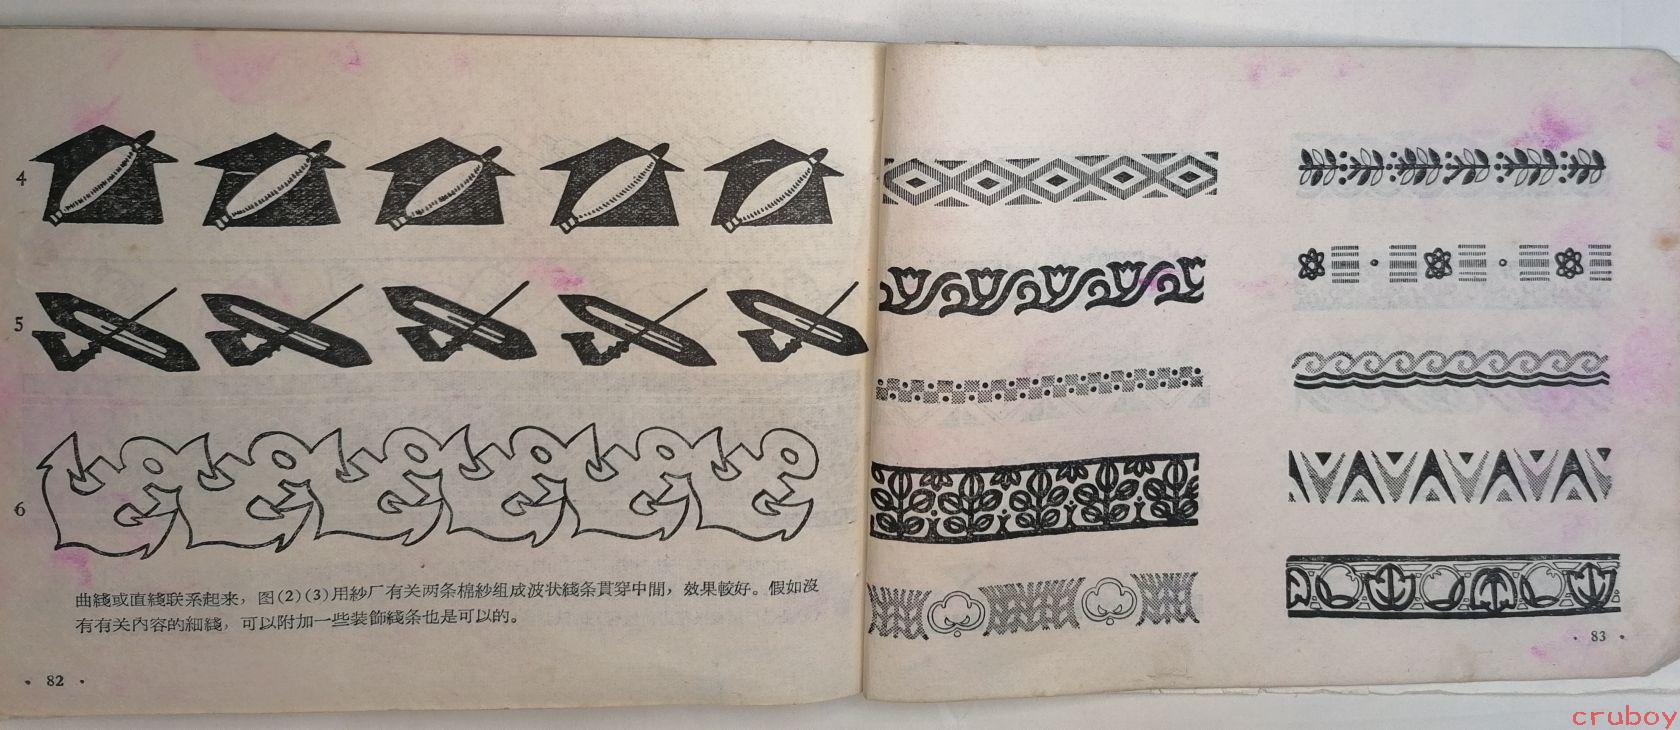 4
5
6
曲綫或直綫联系起来，图(2)(3)用紗厂有关两条棉紗組成波状綫条貫穿中間，效果較好。假如沒
有有关內容的細綫，可以附加一些装飾綫条也是可以的。
· 82 ·
· 83 ·
cruboy